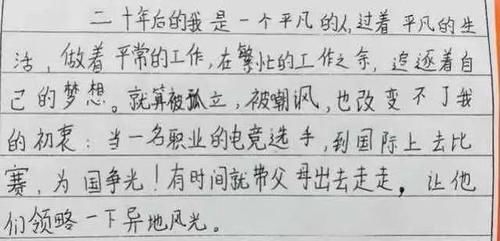 二十年后的我是一个平凡的人,过着平凡的生
活,做着平常的工作,在繁忙的工作之余,追逐着自
己的梦想。就算被孤立,被嘲讽,也改变不了我
的初衷:当一名职业的电竞选手,到国际上去比
赛,为国争光!有时间就带父母出去走走,让他
们领略一下异地风光。